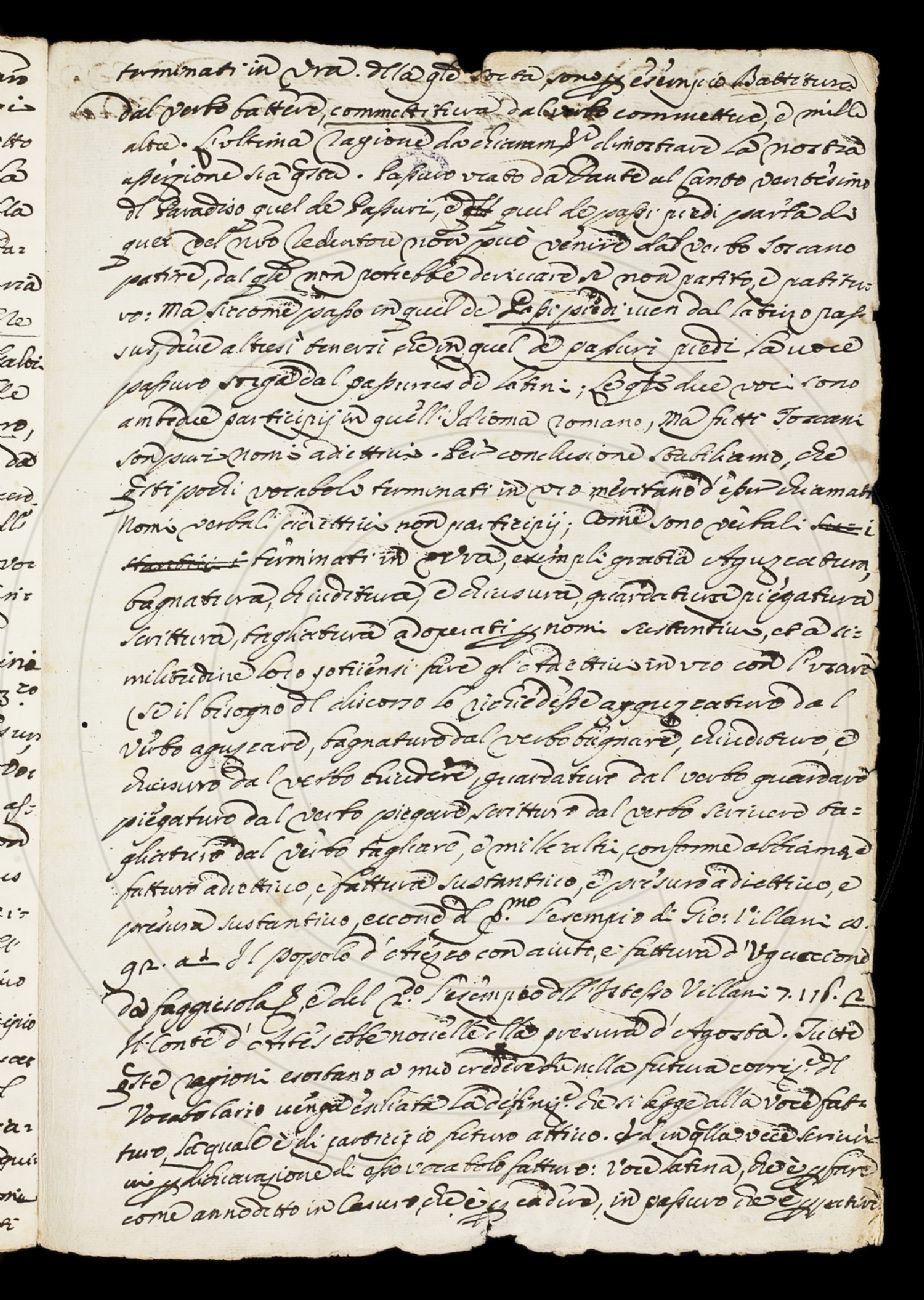 terminati in Vra. dlla qle sorta, sono p esempio Battitura
dal verbo battere, commettitura dal verbo commettere, e mille
altre. L'ultima ragione da chiaram.te dimostrare la nostra
assertione sia qsta. Passuro usato da Dante al Canto ventesimo
dl Paradiso quel de Passuri, e quel de passi piedi parla di
quei del nro redentore non può venire dal verbo Toscano
patire, dal qle non potrebbe derivare se non patito, e patitu-
ro: Ma siccome passo in quel de Passi piedi vien dal latino pas-
sus, deve altresì tenersi che in quel de passuri piedi la voce
passuro sorga dal passurus de latini; le qli due voci sono
ambedue participij in quell'Idioma romano, Ma fatti Toscani
son puri nomi adiettivi. Per conclusione stabiliamo, che
qsti pochi vocaboli terminati in uro meritano d'esser chiamati
Nomi verbali adiettivi non participij; Come sono verbali i
terminati in Vra, exempli gratia Aguzzatura,
bagnatura, chiuditura, e chiusura, guardatura piegatura
scrittura, tagliatura adoperati p nomi sustantivi, et a si-
militudine loro potriensi fare gl'Adiettivi in uro con l'usare
(se il bisogno dl discorso lo richiedesse aguzzaturo dal
verbo aguzzare, bagnaturo dal verbo bagnare, chiudituro, e
chiusuro dal verbo chiudere, guardaturo dal verbo guardare
piegaturo dal verbo piegare, scritturo dal verbo scrivere ta-
gliaturo dal verbo tagliare, e mille altri, conforme abbiamo
fatturo adiettivo, e fattura sustantivo, e presuro adiettivo, e
presura sustantivo, eccone dl p.mo l'esempio di Gio: Villani
92. Il popolo d'Arezzo con aiuto, e fattura d'Uguccione
da faggiuola, e del 2.do l'esempio dll'Istesso Villani 7. 116. 2
Il Conte d'Artes ebbe novelle dlla presura d'Agosta. Tutte
qste ragioni esortano a mio credere che nella futura correz.e dl
Vocabolario venga emendata la definiz.e che si legge alla voce fat-
turo, la qual è di participio futuro attivo. Ed in qlla vece scriver-
vi p dichiarazione di esso vocabolo fatturo: Voce latina, che è p fare
come anno detto in Casuro, che è p cadere, in passuro che è p patire